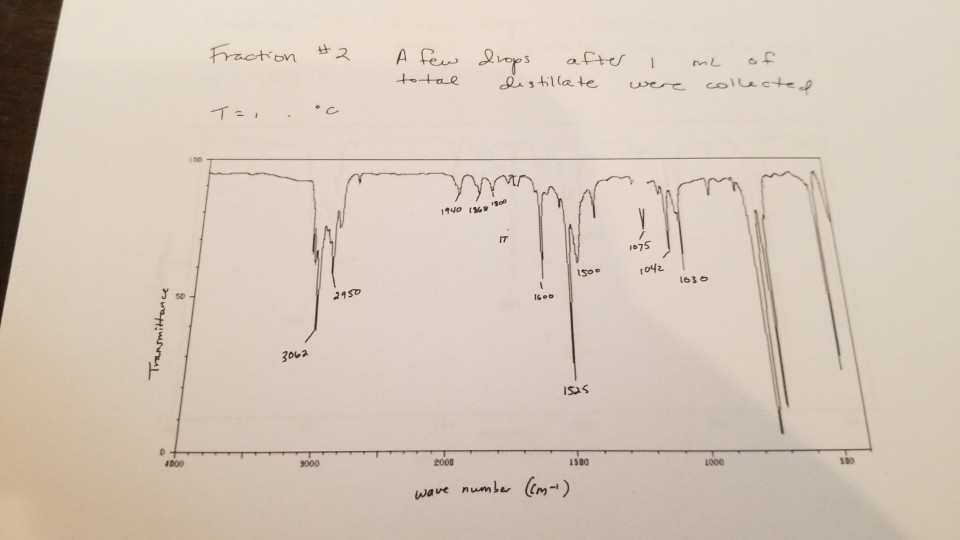 Fraction #2 A few drops after 1 mL of
total distillate were collected
T = . °C
100
1940 1868 1800
1075
1042
1030
1500
50
2950
1600
Transmittance
3062
1525
0
4000 3000 2000 1500 1000 500
wave number (cm-1)